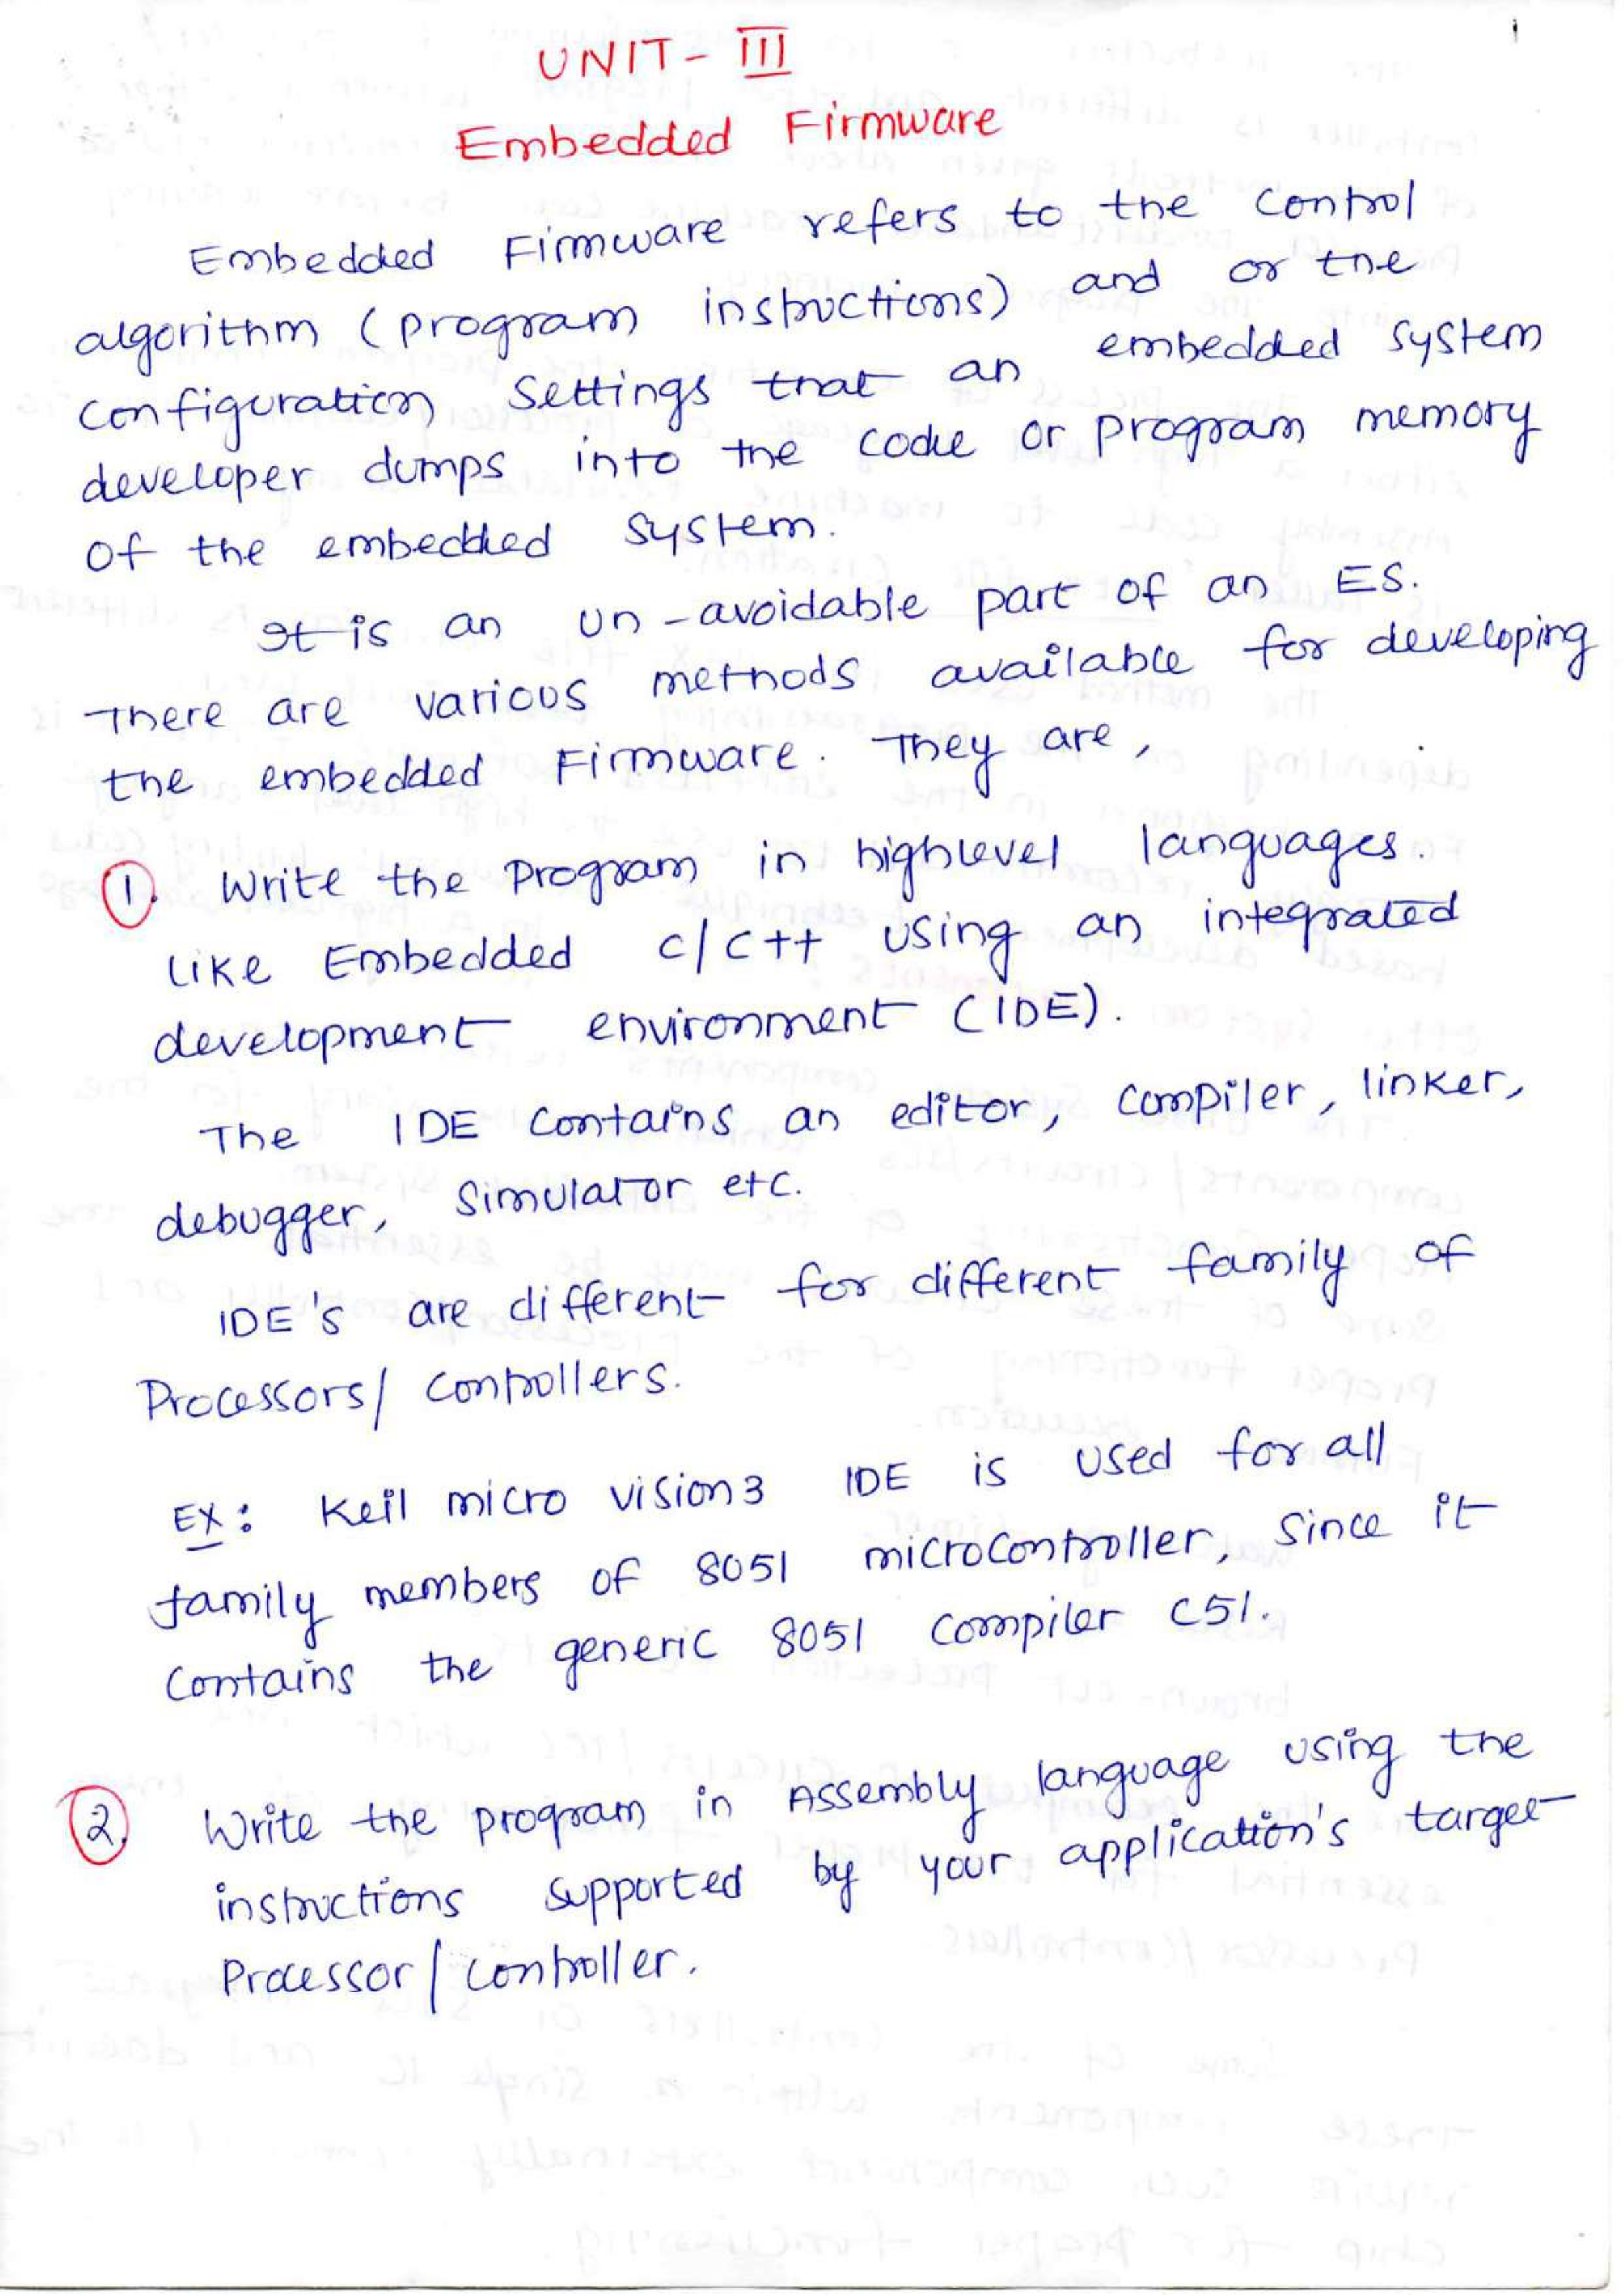 UNIT - III
Embedded Firmware
Embedded Firmware refers to the control
algorithm (program instructions) and or the
configuration settings that an embedded system
developer dumps into the code or program memory
of the embedded system.
It is an un-avoidable part of an ES.
There are various methods available for developing
the embedded Firmware. They are,
1. Write the program in highlevel languages.
like Embedded c/c++ using an integrated
development environment (IDE).
The IDE contains an editor, compiler, linker,
debugger, simulator etc.
IDE's are different for different family of
Processors/ controllers.
Ex: Keil micro vision3 IDE is used for all
family members of 8051 microcontroller, since it
contains the generic 8051 compiler C51.
2. Write the program in Assembly language using the
instructions supported by your application's target
Processor / controller.